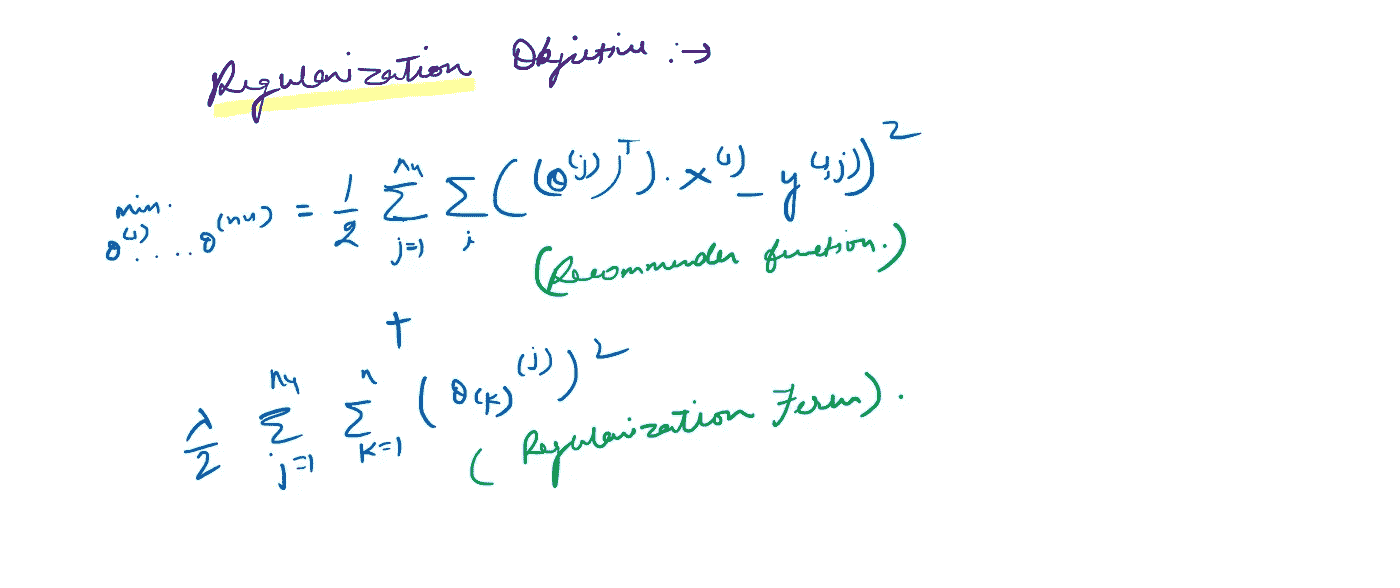 Regularization Objective :→
min. θ^(i) .... θ^(nu) = 1/2 Σ_{j=1}^{nu} Σ_i ((θ^(j))^T) . x^(i) - y^(i,j))^2
(Recommender function.)
+
λ/2 Σ_{j=1}^{nu} Σ_{k=1}^{n} (θ(k)^(j))^2
(Regularization Term).